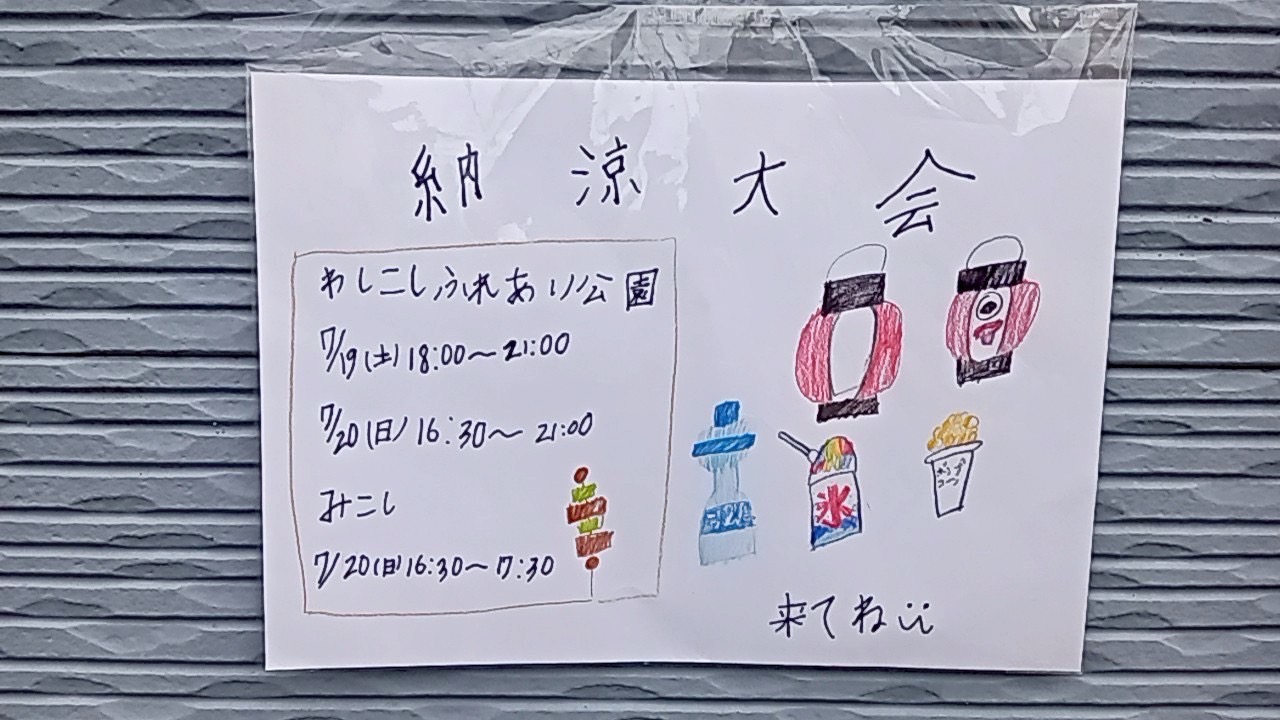 納涼大会
わしこしふれあい公園
7/19(土)18:00～21:00
7/20(日)16:30～21:00
みこし
7/20(日)16:30～7:30
氷
ポップ
コーン
来てね